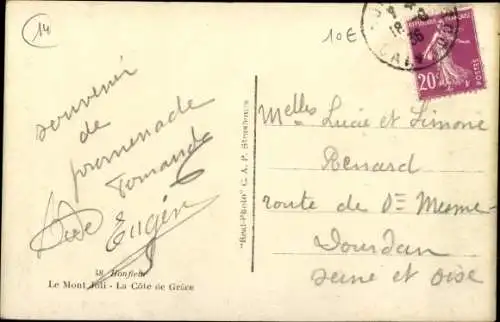 14
10€
18 36
REPUBLIQUE FRANÇAISE
20c
POSTES
souvenir
de
promenade
Fernande
Eugénie
38 Honfleur
Le Mont Joli - La Côte de Grâce
"Real-Photo" C. A. P. Strasbourg
Melles Lucie et Simone
Renard
route de Ste Mesme
Dourdan
Seine et Oise